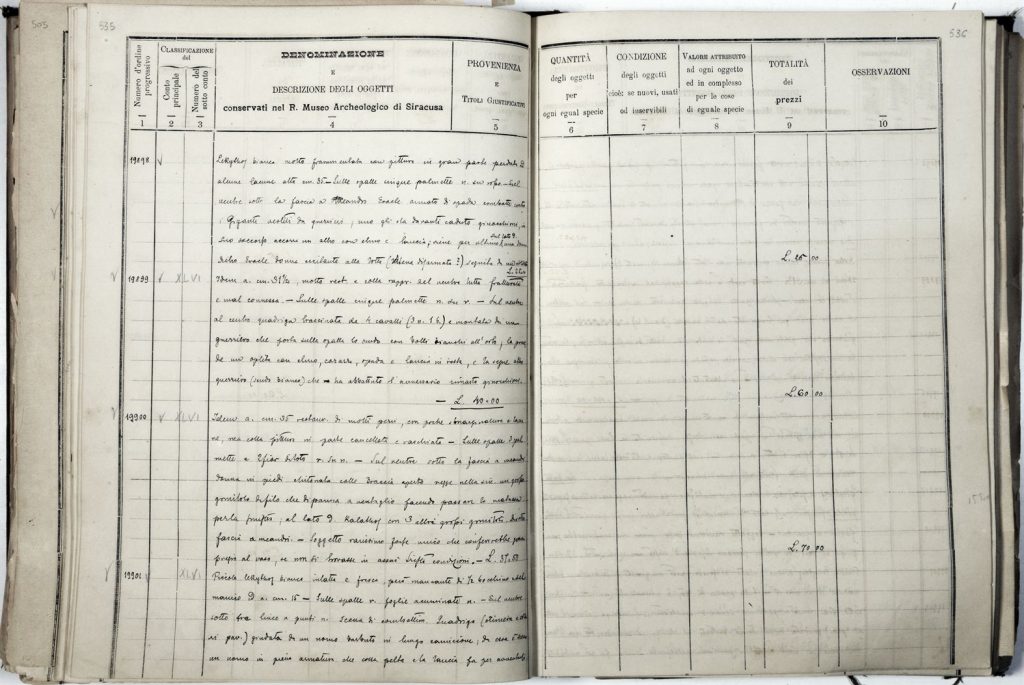 505
535
536
Numero d'ordine progressivo
CLASSIFICAZIONE del
Conto principale
Numero del sotto conto
DENOMINAZIONE
E
DESCRIZIONE DEGLI OGGETTI
conservati nel R. Museo Archeologico di Siracusa
PROVENIENZA
E
TITOLI GIUSTIFICATIVI
QUANTITÀ
degli oggetti
per
ogni egual specie
CONDIZIONE
degli oggetti
cioè: se nuovi, usati
od inservibili
VALORE ATTRIBUITO
ad ogni oggetto
ed in complesso
per le cose
di eguale specie
TOTALITÀ
dei
prezzi
OSSERVAZIONI
1 2 3 4 5 6 7 8 9 10
19898 Lekythos bianca molto frammentata con pitture in gran parte perdute
alcune lacune alta cm. 35 — Sulle spalle cinque palmette n. su rosso — Sul
ventre sotto la fascia a meandro Eracle armato di spada combatte contro
i Giganti vestiti da guerrieri, uno gli sta davante caduto ginocchioni, in
suo soccorso accorre un altro con elmo e lancia; viene per ultimo una donna
Dietro Eracle donna eccitante alla lotta (Atena disarmata?) seguita da
L. 25 00
19899 XLVI Idem a. cm. 31½, molto rest. e colla rappr. del ventre tutta fratturata
e mal connessa. — Sulle spalle cinque palmette n. su r. — Sul ventre
al centro quadriga trascinata da 4 cavalli (3 n. 1 b.) e montata da un
guerriero che porta sulle spalle lo scudo con bolli bianchi all'orlo, la
de un oplita con elmo, corazza, spada e lancia in resta, e la segue altro
guerriero (scudo bianco) che ha abbattuto l'avversario rimasto ginocchioni.
— L. 40.00
L. 60 00
19900 XLVI Idem a. cm. 35 restaur. di molti pezzi, con poche
ne, ma colla pittura in parte cancellata e raschiata — Sulle spalle 5 pal-
mette e 2 fior di loto n. su r. — Sul ventre sotto la fascia a meandri
donna in piedi chitonata colle braccia aperte regge nella sin. un grosso
gomitolo di filo che dipanna a ventaglio facendo passare la matassa
per la; al lato D. Kalathos con 3 altri grossi gomitoli. Sotto
fascia a meandri. — Soggetto rarissimo forse unico che conferirebbe gran
pregio al vaso, se non si trovasse in assai tristi condizioni. — L.
L. 70 00
19901 XLVI Piccola lekythos bianca intatta e fresca, però mancante di ½ bocchino e del
manico D a. cm. 15 — Sulle spalle r. foglie acuminate n. — Sul ventre
sotto fra linee e punti n. Scena di combattim. Quadriga
guidata da un uomo barbuto in lungo camicione; da essa è sceso
un uomo in piena armatura che colla pelta e la lancia fa per avventarsi